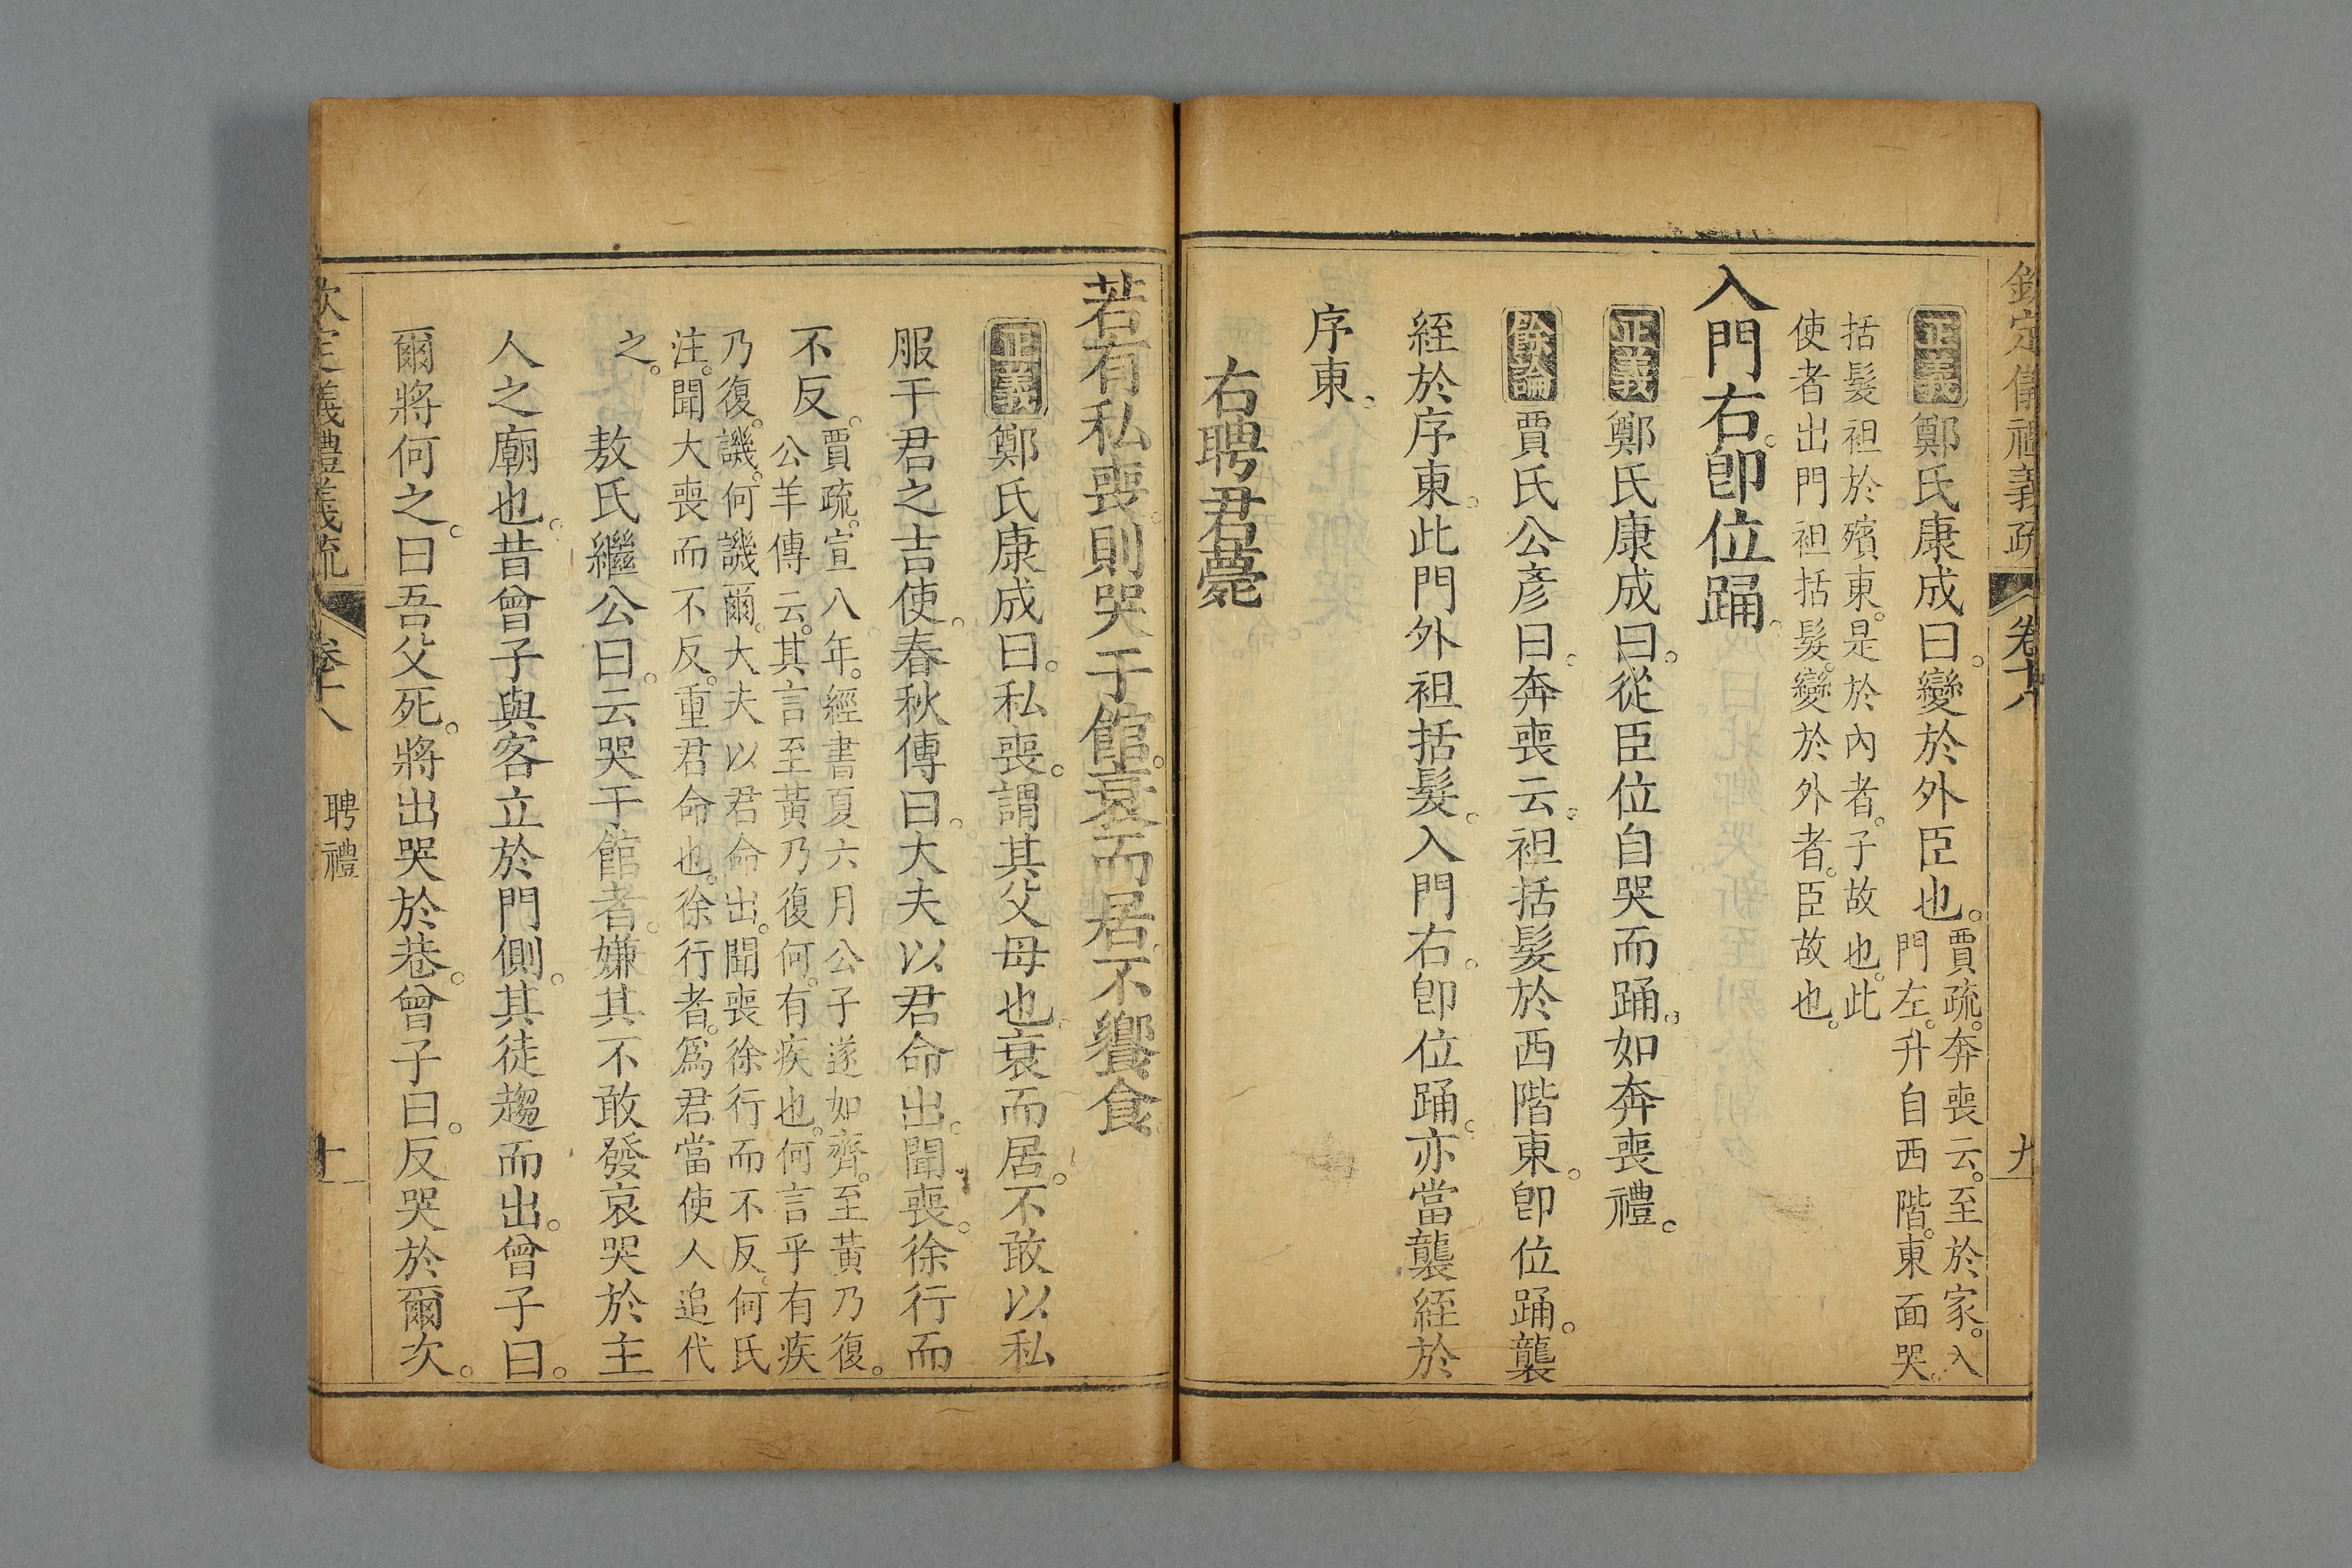 欽定儀禮義疏 卷十八 九
正義鄭氏康成曰。變於外臣也。賈疏。奔喪云。至於家。入
門左。升自西階。東面哭。
括髮袒於殯東。是於內者。子故也。此
使者出門袒括髮。變於外者。臣故也。
入門右。卽位踊。
正義鄭氏康成曰。從臣位自哭而踊。如奔喪禮。
餘論賈氏公彥曰。奔喪云。袒括髮於西階東。卽位踊。襲
絰於序東。此門外袒括髮。入門右。卽位踊。亦當襲絰於
序東。
右聘君薨
若有私喪。則哭于館。衰而居。不饗食。
正義鄭氏康成曰。私喪。謂其父母也。衰而居。不敢以私
服于君之吉使。春秋傳曰。大夫以君命出。聞喪。徐行而
不反。賈疏。宣八年。經書夏六月公子遂如齊。至黃乃復。
公羊傳云。其言至黃乃復何。有疾也。何言乎有疾
乃復。譏。何譏爾。大夫以君命出。聞喪徐行而不反。何氏
注。聞大喪而不反。重君命也。徐行者。爲君當使人追代
之。
敖氏繼公曰。云哭于館者。嫌其不敢發哀哭於主
人之廟也。昔曾子與客立於門側。其徒趨而出。曾子曰。
爾將何之。曰吾父死。將出哭於巷。曾子曰。反哭於爾次。
欽定義禮義疏 卷十八 聘禮 十